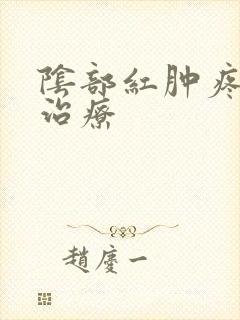 陰部紅肿疼
治療
趙慶一